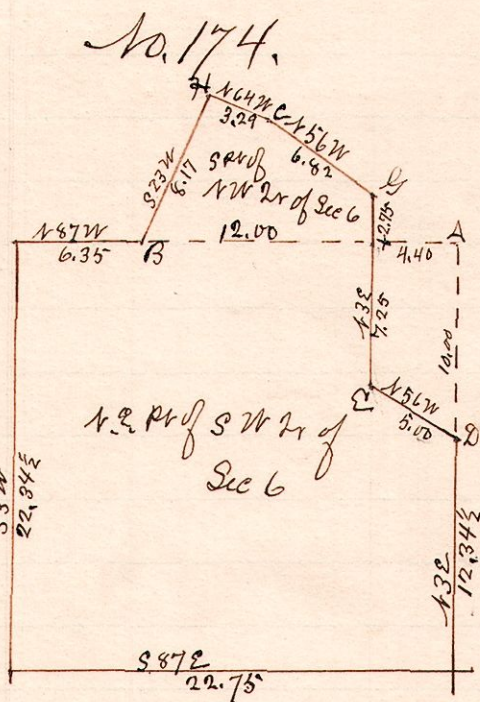 No. 174.
H
N64W
3.29
C
N56W
6.82
S23W
8.17
S Pt of
NW Qr of Sec 6
G
2.75
N87W
6.35
B
12.00
4.40
A
N3E
7.25
10.00
E
N56W
5.00
D
N.E. Pt of S W Qr of
Sec 6
S3W
22.34½
N3E
12.34½
S87E
22.75